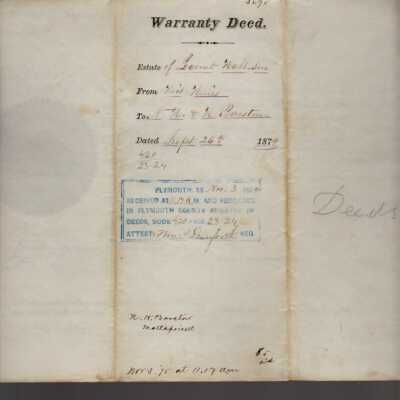 Warranty Deed.
Estate of Hall
From His Heirs
To N. H. & Barstow
Dated Sept. 26th 187
420
23-24
PLYMOUTH, SS Nov. 3
RECEIVED AT M. AND RECORDED
IN PLYMOUTH COUNTY REGISTRY OF
DEEDS, BOOK 420 PAGE 23-24
ATTEST: Wm. S. Danforth REG.
Deeds
N. H. Barstow
Mattapoisett
Nov 3. at am